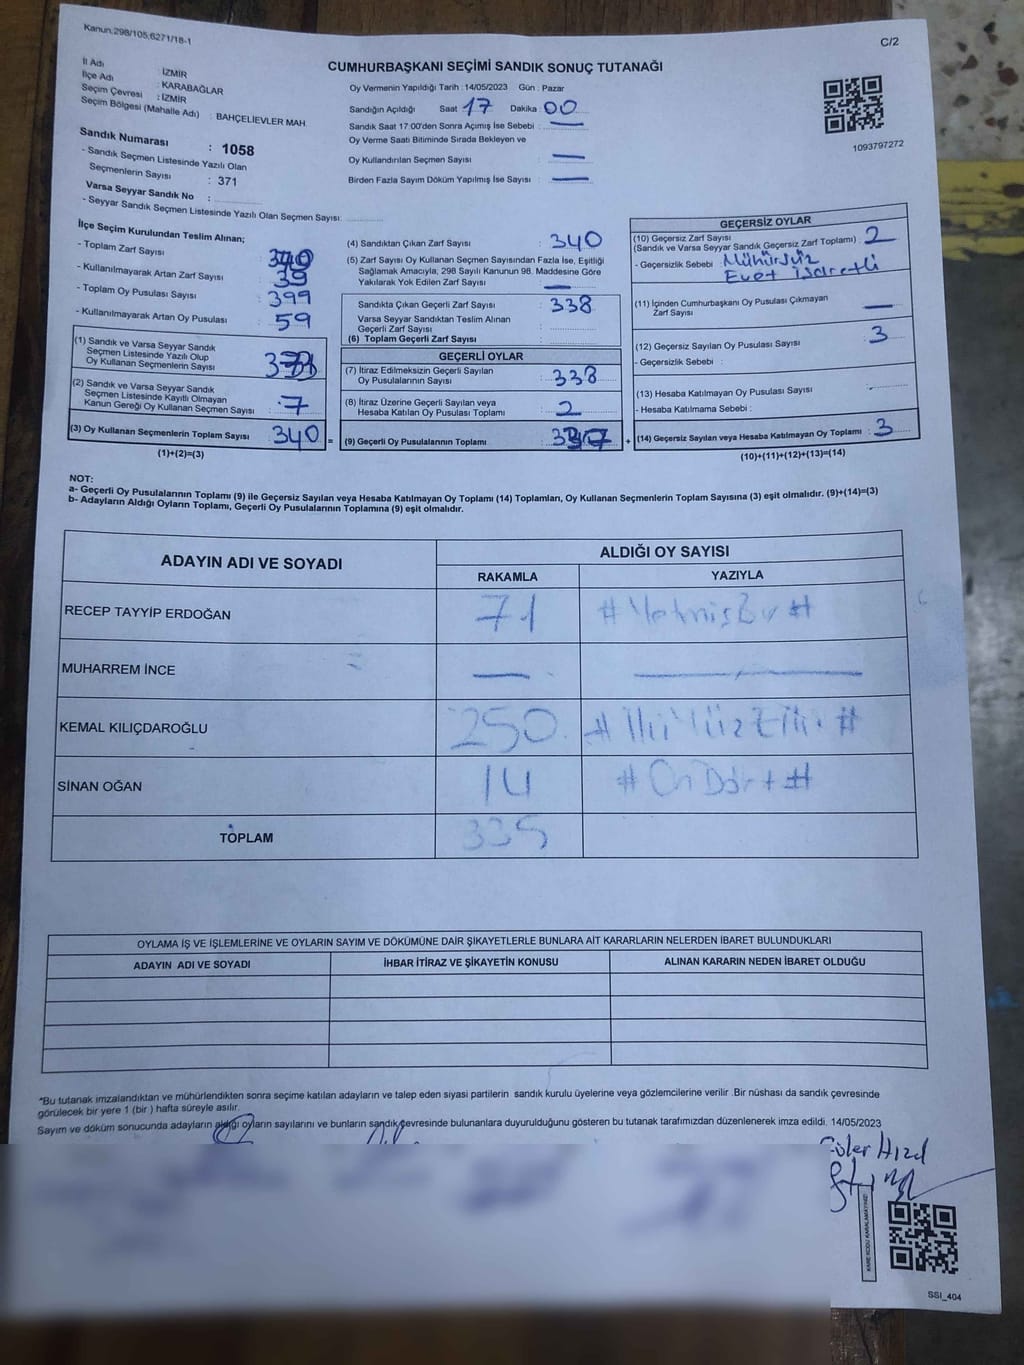 Kanun.298/105,6271/18-1
C/2
İl Adı : İZMİR
İlçe Adı : KARABAĞLAR
Seçim Çevresi : İZMİR
Seçim Bölgesi (Mahalle Adı) : BAHÇELİEVLER MAH.
Sandık Numarası : 1058
- Sandık Seçmen Listesinde Yazılı Olan
Seçmenlerin Sayısı : 371
Varsa Seyyar Sandık No :
- Seyyar Sandık Seçmen Listesinde Yazılı Olan Seçmen Sayısı:
CUMHURBAŞKANI SEÇİMİ SANDIK SONUÇ TUTANAĞI
Oy Vermenin Yapıldığı Tarih : 14/05/2023 Gün : Pazar
Sandığın Açıldığı Saat 17 Dakika 00
Sandık Saat 17:00'den Sonra Açımış İse Sebebi : —
Oy Verme Saati Bitiminde Sırada Bekleyen ve
Oy Kullandırılan Seçmen Sayısı : —
Birden Fazla Sayım Döküm Yapılmış İse Sayısı : —
1093797272
İlçe Seçim Kurulundan Teslim Alınan;
- Toplam Zarf Sayısı :
- Kullanılmayarak Artan Zarf Sayısı : 39
- Toplam Oy Pusulası Sayısı : 399
- Kullanılmayarak Artan Oy Pusulası : 59
(1) Sandık ve Varsa Seyyar Sandık
Seçmen Listesinde Yazılı Olup
Oy Kullanan Seçmenlerin Sayısı :
(2) Sandık ve Varsa Seyyar Sandık
Seçmen Listesinde Kayıtlı Olmayan
Kanun Gereği Oy Kullanan Seçmen Sayısı : 7
(3) Oy Kullanan Seçmenlerin Toplam Sayısı : 340 =
(1)+(2)=(3)
(4) Sandıktan Çıkan Zarf Sayısı : 340
(5) Zarf Sayısı Oy Kullanan Seçmen Sayısından Fazla İse, Eşitliği
Sağlamak Amacıyla, 298 Sayılı Kanunun 98. Maddesine Göre
Yakılarak Yok Edilen Zarf Sayısı : —
Sandıkta Çıkan Geçerli Zarf Sayısı : 338
Varsa Seyyar Sandıktan Teslim Alınan
Geçerli Zarf Sayısı :
(6) Toplam Geçerli Zarf Sayısı :
GEÇERLİ OYLAR
(7) İtiraz Edilmeksizin Geçerli Sayılan
Oy Pusulalarının Sayısı : 338
(8) İtiraz Üzerine Geçerli Sayılan veya
Hesaba Katılan Oy Pusulası Toplamı : 2
(9) Geçerli Oy Pusulalarının Toplamı : +
GEÇERSİZ OYLAR
(10) Geçersiz Zarf Sayısı
(Sandık ve Varsa Seyyar Sandık Geçersiz Zarf Toplamı) : 2
- Geçersizlik Sebebi : Mühürsüz
Evet İşaretli
(11) İçinden Cumhurbaşkanı Oy Pusulası Çıkmayan
Zarf Sayısı : —
(12) Geçersiz Sayılan Oy Pusulası Sayısı : 3
- Geçersizlik Sebebi :
(13) Hesaba Katılmayan Oy Pusulası Sayısı :
- Hesaba Katılmama Sebebi :
(14) Geçersiz Sayılan veya Hesaba Katılmayan Oy Toplamı : 3
(10)+(11)+(12)+(13)=(14)
NOT:
a- Geçerli Oy Pusulalarının Toplamı (9) ile Geçersiz Sayılan veya Hesaba Katılmayan Oy Toplamı (14) Toplamları, Oy Kullanan Seçmenlerin Toplam Sayısına (3) eşit olmalıdır. (9)+(14)=(3)
b- Adayların Aldığı Oyların Toplamı, Geçerli Oy Pusulalarının Toplamına (9) eşit olmalıdır.
ADAYIN ADI VE SOYADI
ALDIĞI OY SAYISI
RAKAMLA YAZIYLA
RECEP TAYYİP ERDOĞAN 71 # YetmişBir #
MUHARREM İNCE — —
KEMAL KILIÇDAROĞLU 250 # İki Yüz Elli #
SİNAN OĞAN 14 # On Dört #
TOPLAM 335
OYLAMA İŞ VE İŞLEMLERİNE VE OYLARIN SAYIM VE DÖKÜMÜNE DAİR ŞİKAYETLERLE BUNLARA AİT KARARLARIN NELERDEN İBARET BULUNDUKLARI
ADAYIN ADI VE SOYADI İHBAR İTİRAZ VE ŞİKAYETİN KONUSU ALINAN KARARIN NEDEN İBARET OLDUĞU
*Bu tutanak imzalandıktan ve mühürlendikten sonra seçime katılan adayların ve talep eden siyasi partilerin sandık kurulu üyelerine veya gözlemcilerine verilir .Bir nüshası da sandık çevresinde
görülecek bir yere 1 (bir ) hafta süreyle asılır.
Sayım ve döküm sonucunda adayların aldığı oyların sayılarını ve bunların sandık çevresinde bulunanlara duyurulduğunu gösteren bu tutanak tarafımızdan düzenlenerek imza edildi. 14/05/2023
KARE KODU KARALAMAYINIZ!
SSI_404